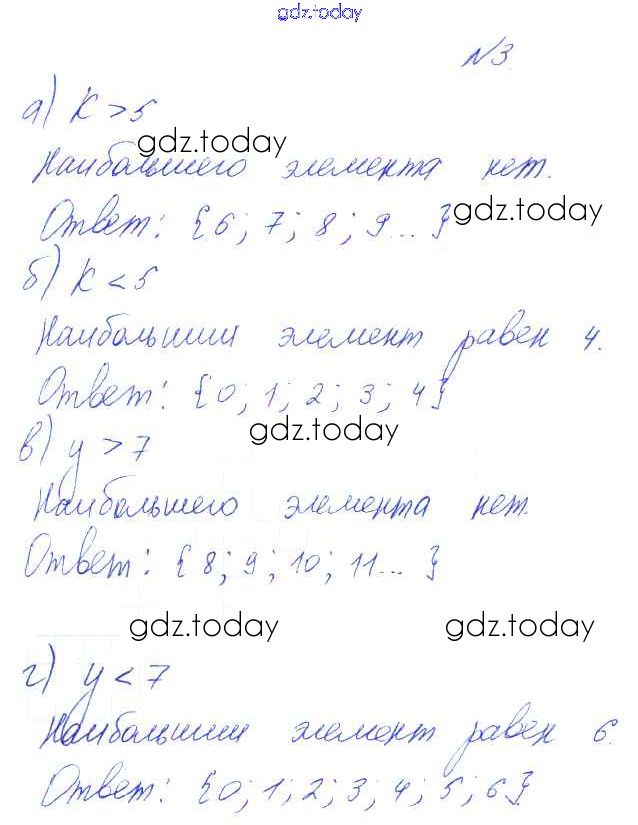 gdz.today
№3.
а) K > 5
gdz.today
Наибольшего элемента нет.
Ответ: {6; 7; 8; 9...}
gdz.today
б) K < 5
Наибольший элемент равен 4.
Ответ: {0; 1; 2; 3; 4}
gdz.today
в) y > 7
Наибольшего элемента нет.
Ответ: {8; 9; 10; 11...}
gdz.today gdz.today
г) y < 7
Наибольший элемент равен 6.
Ответ: {0; 1; 2; 3; 4; 5; 6}.